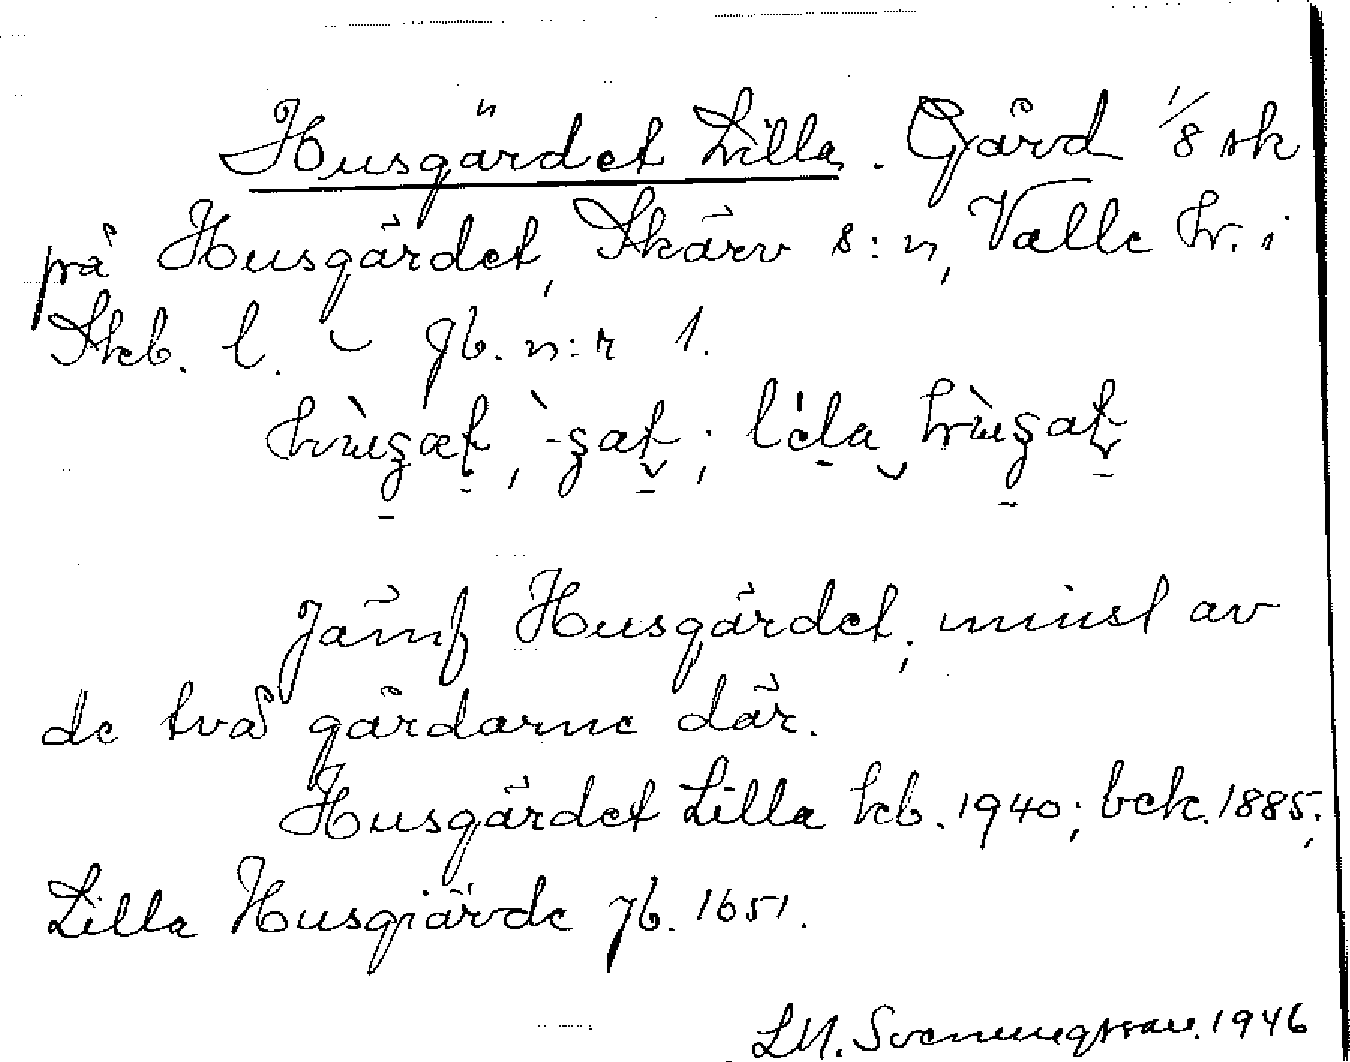 Husgärdet Lilla. Gård 1/8 sk
på Husgärdet, Skärv s:n, Valle hr. i
Skb. l. – Jb. n:r 1.
Jämf Husgärdet; minst av
de två gårdarne där.
Husgärdet Lilla kb. 1940; bek. 1885;
Lilla Husgiärde Jb. 1651.
1946